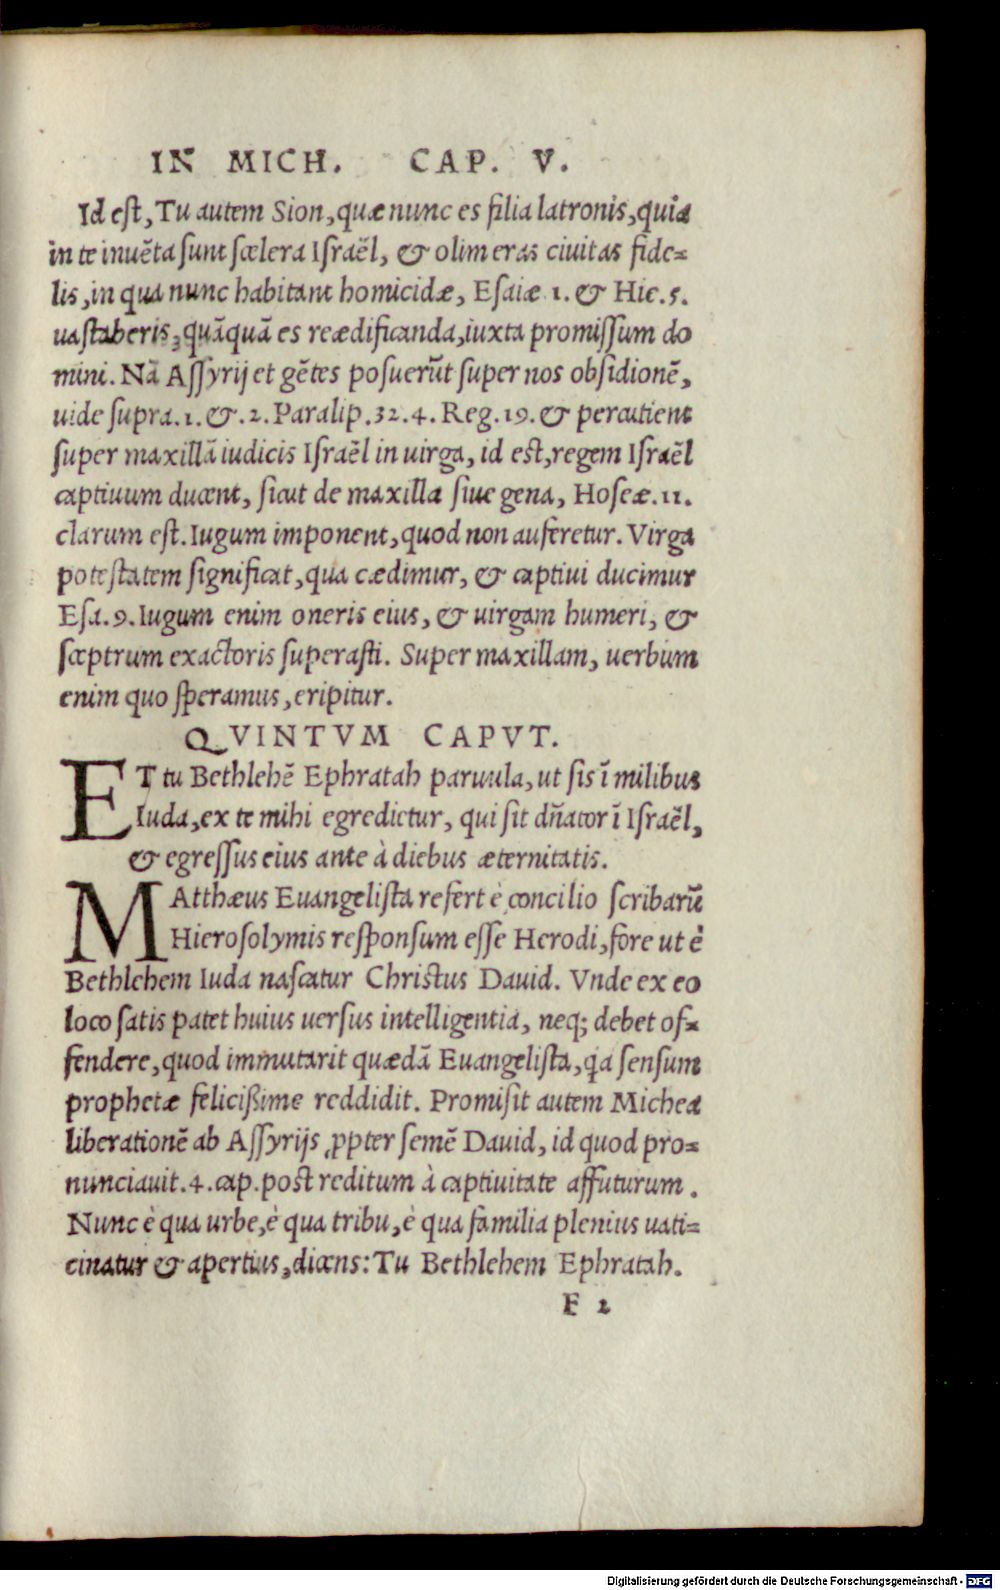 IN MICH. CAP. V.
Id est, Tu autem Sion, quæ nunc es filia latronis, quia
in te inuẽta sunt scelera Israẽl, & olim eras ciuitas fide-
lis, in qua nunc habitant homicidæ, Esaiæ 1. & Hie. 5.
uastaberis, quãquã es reædificanda, iuxta promissum do
mini. Nã Assyrij et gẽtes posuerũt super nos obsidionẽ,
uide supra. 1. &. 2. Paralip. 32. 4. Reg. 19. & percutient
super maxillã iudicis Israẽl in uirga, id est, regem Israẽl
captiuum ducent, sicut de maxilla siue gena, Hoseæ. 11.
clarum est. Iugum imponent, quod non auferetur. Virga
potestatem significat, qua cædimur, & captiui ducimur
Esa. 9. Iugum enim oneris eius, & uirgam humeri, &
sceptrum exactoris superasti. Super maxillam, uerbum
enim quo speramus, eripitur.
QVINTVM CAPVT.
ET tu Bethlehẽ Ephratah paruula, ut sis ĩ milibus
Iuda, ex te mihi egredietur, qui sit dñator ĩ Israẽl,
& egressus eius ante à diebus æternitatis.
MAtthæus Euangelista refert è concilio scribarũ
Hierosolymis responsum esse Herodi, fore ut è
Bethlehem Iuda nascatur Christus Dauid. Vnde ex eo
loco satis patet huius uersus intelligentia, neq; debet of-
fendere, quod immutarit quædã Euangelista, q̃a sensum
prophetæ felicißime reddidit. Promisit autem Michea
liberationẽ ab Assyrijs ꝓpter semẽ Dauid, id quod pro-
nunciauit. 4. cap. post reditum à captiuitate affuturum.
Nunc è qua urbe, è qua tribu, è qua familia plenius uati-
cinatur & apertius, dicens: Tu Bethlehem Ephratah.
F 2
Digitalisierung gefördert durch die Deutsche Forschungsgemeinschaft - DFG